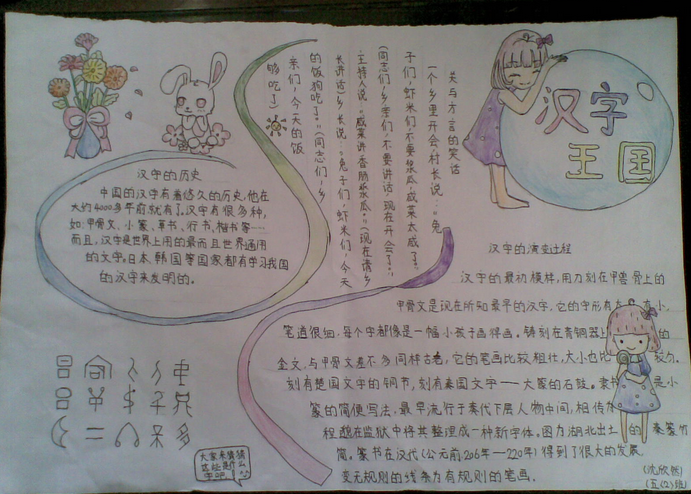 汉字
王国
关与方言的笑话
一个乡里开会,村长说:“兔
子们,虾米们,不要浆瓜,咸菜太咸了。”
(同志们,乡亲们,不要讲话,现在开会了。)
主持人说:“咸菜请香肠浆瓜。”(现在请乡
长讲话)乡长说:“兔子们,虾米们,今天
的饭狗吃了。”(同志们,乡
亲们,今天的饭
够吃了)
汉字的历史
中国的汉字有着悠久的历史,他在
大约4000多年前就有了,汉字有很多种,
如:甲骨文、小篆、草书、行书、楷书等…
而且,汉字是世界上用的最而且世界通用
的文字。日本、韩国等国家都有学习我国
的汉字来发明的。
汉字的演变过程
汉字的最初模样,用刀刻在甲兽骨上的
甲骨文是现在所知最早的汉字,它的字形有 小,
笔道很细,每个字都像是一幅小孩子画得画。铸刻在青铜器上 的
金文,与甲骨文差不多同样古老,它的笔画比较粗壮,大小也比 较匀。
刻有楚国文字的铜节,刻有秦国文字——大篆的石鼓。隶书 是小
篆的简便写法,最早流行于秦代下层人物中间,相传
程邈在监狱中将其整理成一种新字体。图为湖北出土 的 秦篆竹
简。篆书在汉代(公元前206年—220年)得到了很大的发展,
变无规则的线条为有规则的笔画。
大家来猜猜
这些是什么
字吧
沈欣然
(五(2)班)